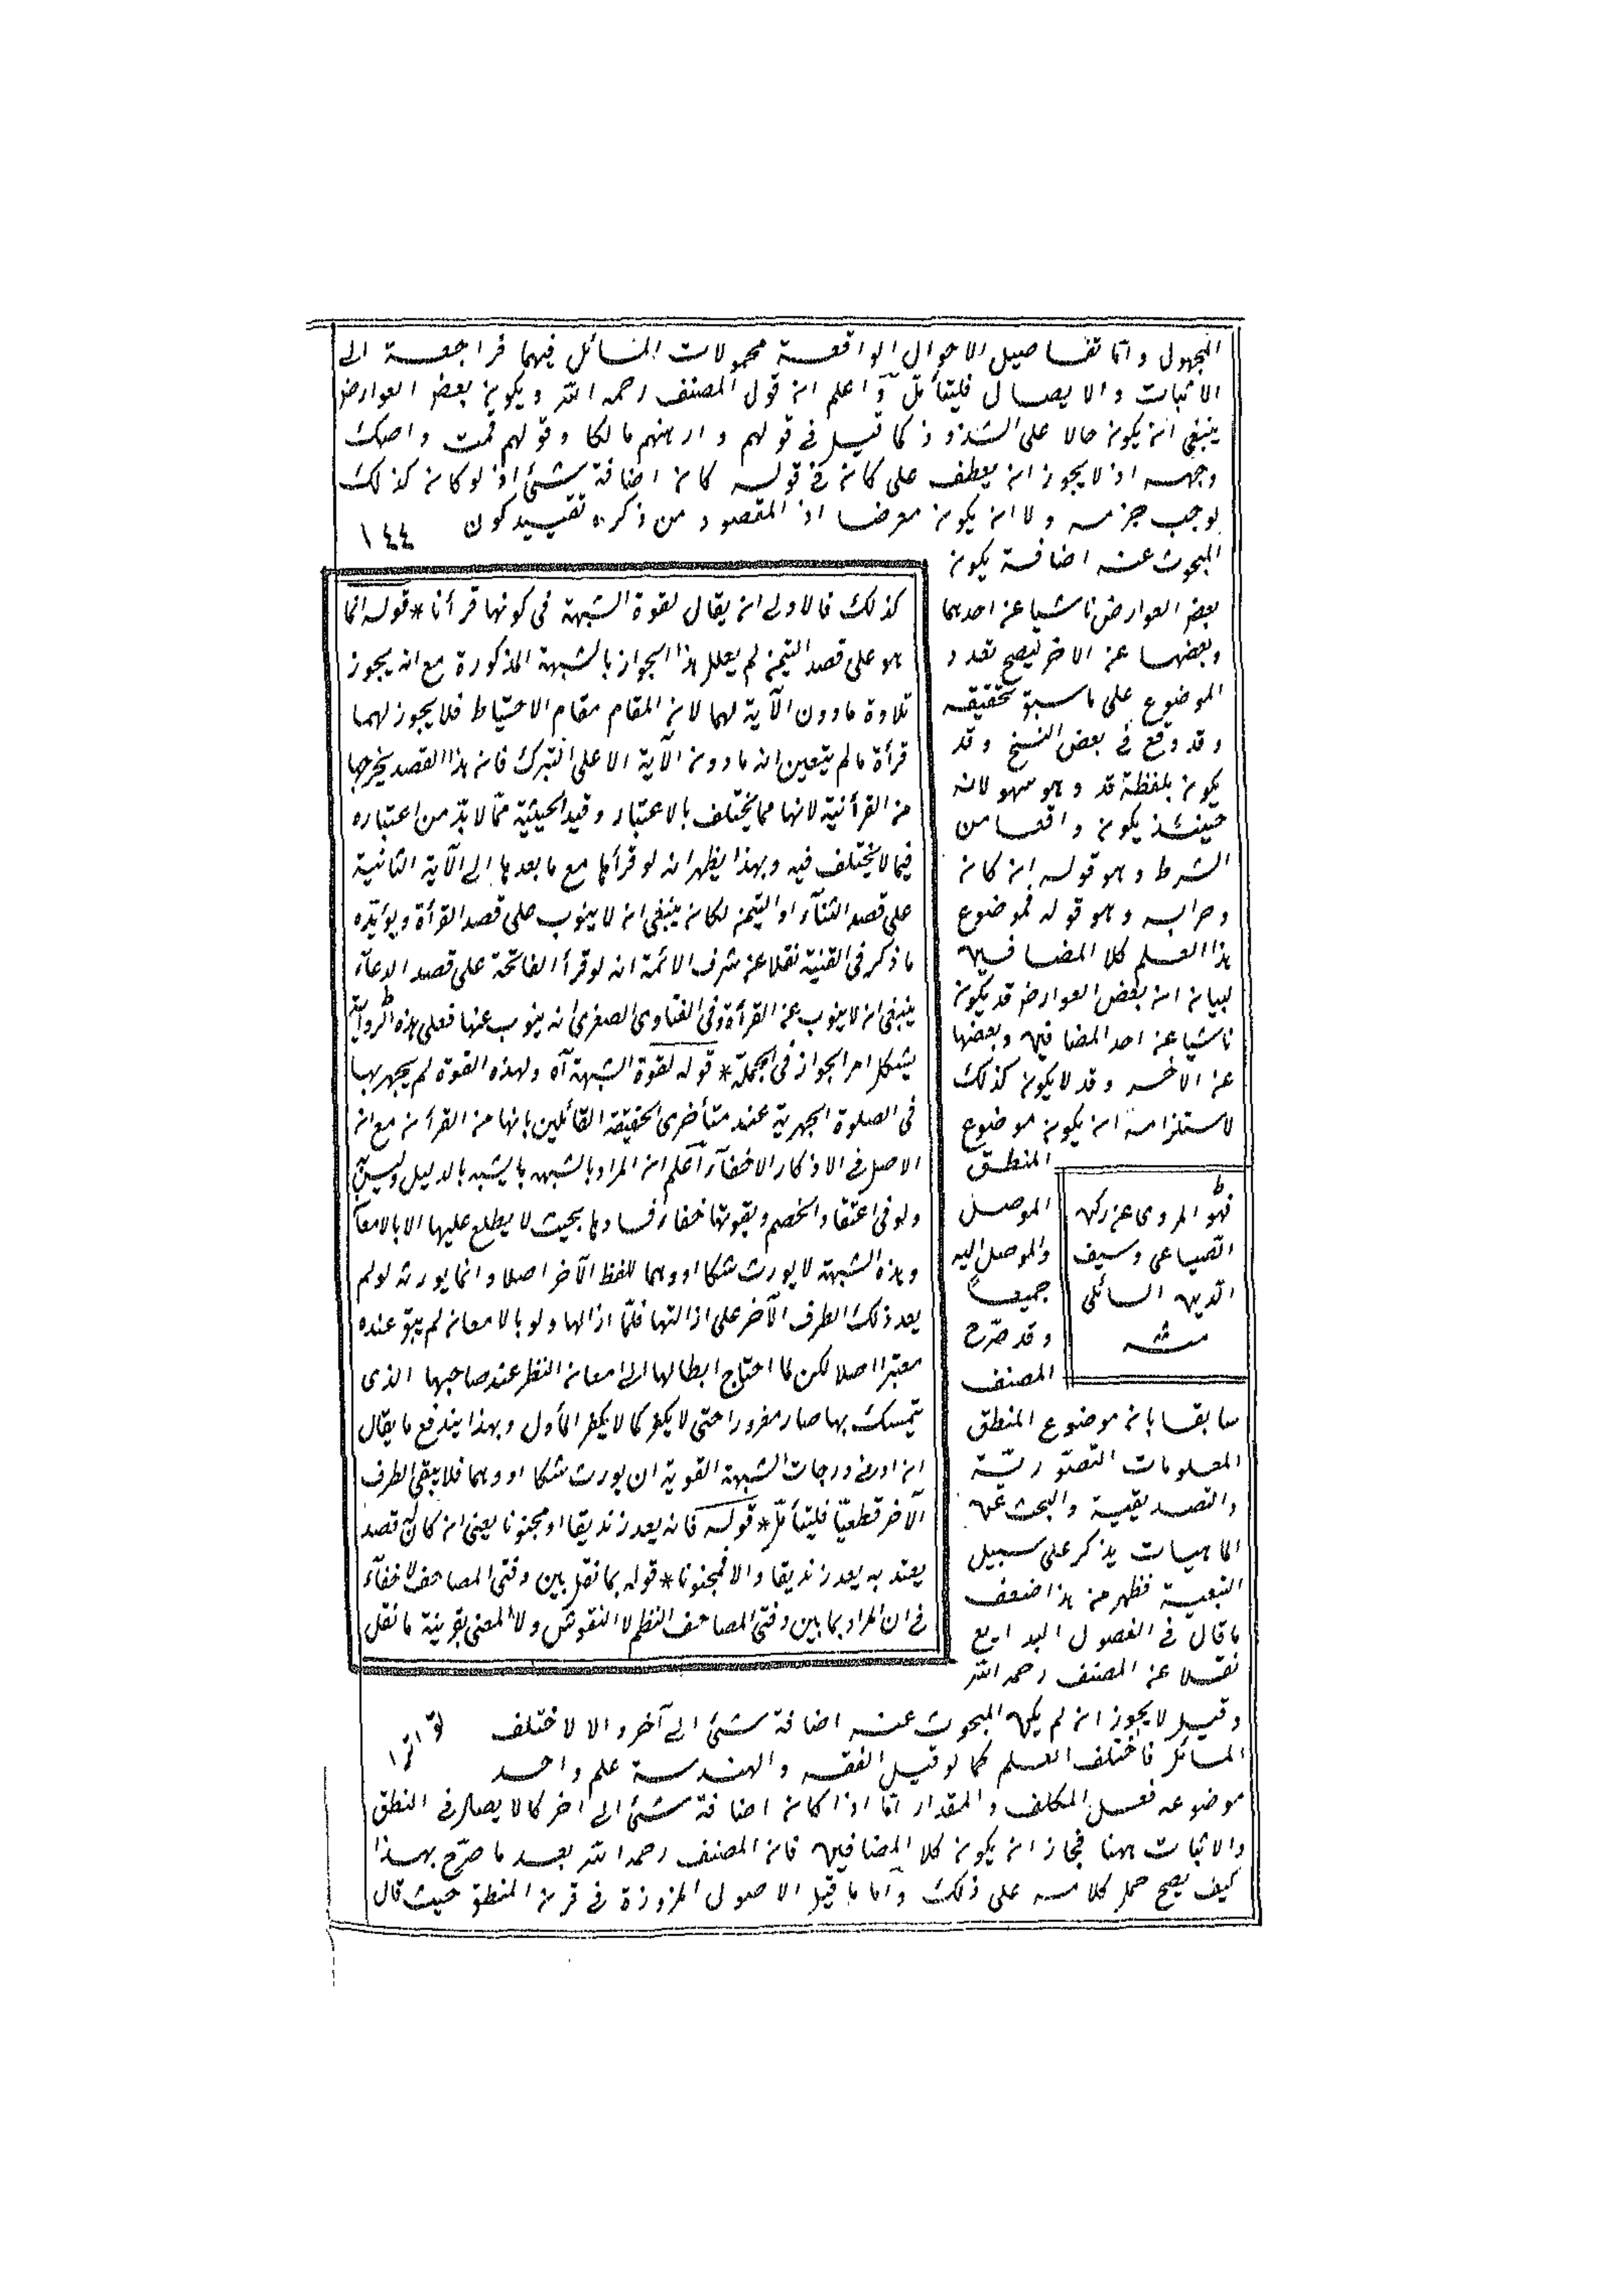 المجهول واما تفاصيل الاحوال الواقعة محمولات المسائل فيهما فراجعة الى
الاثبات والايصال فليتأمل واعلم ان قول المصنف رحمه الله ويكون بعض العوارض
ينبغى ان يكون حالا على الشذوذ كما قيل فى قولهم وارهنهم مالكا وقولهم قمت واصك
وجهه اذ لا يجوز ان يعطف على كان فى قوله كان اضافة شئ اذ لو كان كذلك
لوجب جزمه ولا ان يكون معرضا اذ المقصود من ذكره تقييد كون
١٤٤
المبحوث عنه اضافة يكون
بعض العوارض ناشيا عن احدهما
وبعضها عن الآخر ليصح تعدد
الموضوع على ما سبق تحقيقه
وقد وقع فى بعض النسخ وقد
يكون بلفظة قد وهو سهو لانه
حينئذ يكون واقعا من
الشرط وهو قوله ان كان
وجوابه وهو قوله فموضوع
هذا العلم كلا المضافين
لبيان ان بعض العوارض قد يكون
ناشيا عن احد المضافين وبعضها
عن الآخر وقد لا يكون كذلك
لاستلزامه ان يكون موضوع
المنطق
الموصل
والموصل اليه
جميعا
وقد صرح
المصنف
سابقا بان موضوع المنطق
المعلومات التصورية
والتصديقية والبحث عن
الماهيات يذكر على سبيل
التبعية فظهر من هذا ضعف
ما قال فى الفصول البدايع
نقلا عن المصنف رحمه الله
وقيل لا يجوز ان لم يكن المبحوث عنه اضافة شئ الى آخر والا لاختلف
المسائل فاختلف العلم كما لو قيل الفقه والهندسة علم واحد
موضوعه فعل المكلف والمقدار اما اذا كان اضافة شئ الى آخر كالايصال فى المنطق
والاثبات ههنا فجاز ان يكون كلا المضافين فان المصنف رحمه الله بعد ما صرح بهذا
كيف يصح حمل كلامه على ذلك واما ما قيل الاصول المزورة فى قرن المنطق حيث قال
فهو المروى عن ركن
الصباغى وسيف
الدين السائلى
منه
كذلك فالاولى ان يقال لقوة الشبهة فى كونها قرأنا * قوله انما
هو على قصد التيمن لم يعلل هذا الجواز بالشبهة المذكورة مع انه يجوز
تلاوة ما دون الآية لهما لان المقام مقام الاحتياط فلا يجوز لهما
قرأة ما لم يتعين انه ما دون الآية الا على التبرك فان هذا القصد يخرجها
من القرأنية لانها مما يختلف بالاعتبار وقيد الحيثية مما لا بد من اعتباره
فيما لا يختلف فيه وبهذا يظهر انه لو قرأها مع ما بعدها الى الآية الثانية
على قصد الثناء او التيمن لكان ينبغى ان لا ينوب على قصد القرأة ويؤيده
ما ذكر فى القنية نقلا عن شرف الائمة انه لو قرأ الفاتحة على قصد الدعاء
ينبغى ان لا ينوب عن القرأة وفى الفتاوى الصغرى انه ينوب عنها فعلى هذه الرواية
يشكل امر الجواز فى الجملة * قوله لقوة الشبهة آه ولهذه القوة لم يجهر بها
فى الصلوة الجهرية عند متأخرى الحنفية القائلين بانها من القرأن مع ان
الاصل فى الاذكار الاخفاء اعلم ان المراد بالشبهة ما يشبه بالدليل وليس به
ولو فى اعتقاد الخصم وبقوتها خفاء فسادها بحيث لا يطلع عليها الا بالامعان
وهذه الشبهة لا يورث شكا او وهما للفظ الآخر اصلا وانما يورثه لو لم
يعد ذلك الطرف الآخر على ازالتها فلما ازالها ولو بالامعان لم يبق عنده
معتبرا اصلا لكن لما احتاج ابطالها الى امعان النظر عند صاحبها الذى
يتمسك بها صار معذورا حتى لا يكفر كما لا يكفر المأول وبهذا يندفع ما يقال
ان ادنى درجات الشبهة القوية ان يورث شكا او وهما فلا يبقى الطرف
الآخر قطعيا فليتأمل * قوله فانه يعد زنديقا او مجنونا يعنى ان كان له قصد
يعتد به يعد زنديقا والا فمجنونا * قوله بما نقل بين دفتى المصاحف لا خفاء
فى ان المراد بما بين دفتى المصاحف النظم لا النقوش ولا المعنى بقرينة ما نقل